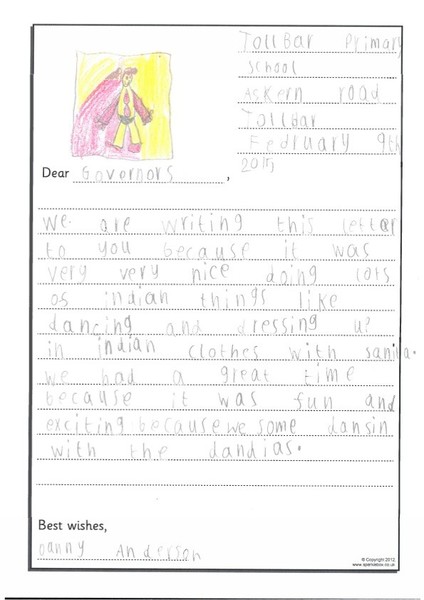 Tollbar Primary
School
Askern road
Tollbar
Fedruary 9th
2015
Dear Governors,
we are writing this letter
to you because it was
very very nice doing lots
os indian things like
dancing and dressing u?
in indian clothes with sanita.
we had a great time
because it was fun and
exciting because we some dansin
with the dandias.
Best wishes,
Danny Anderson
© Copyright 2012
www.sparklebox.co.uk